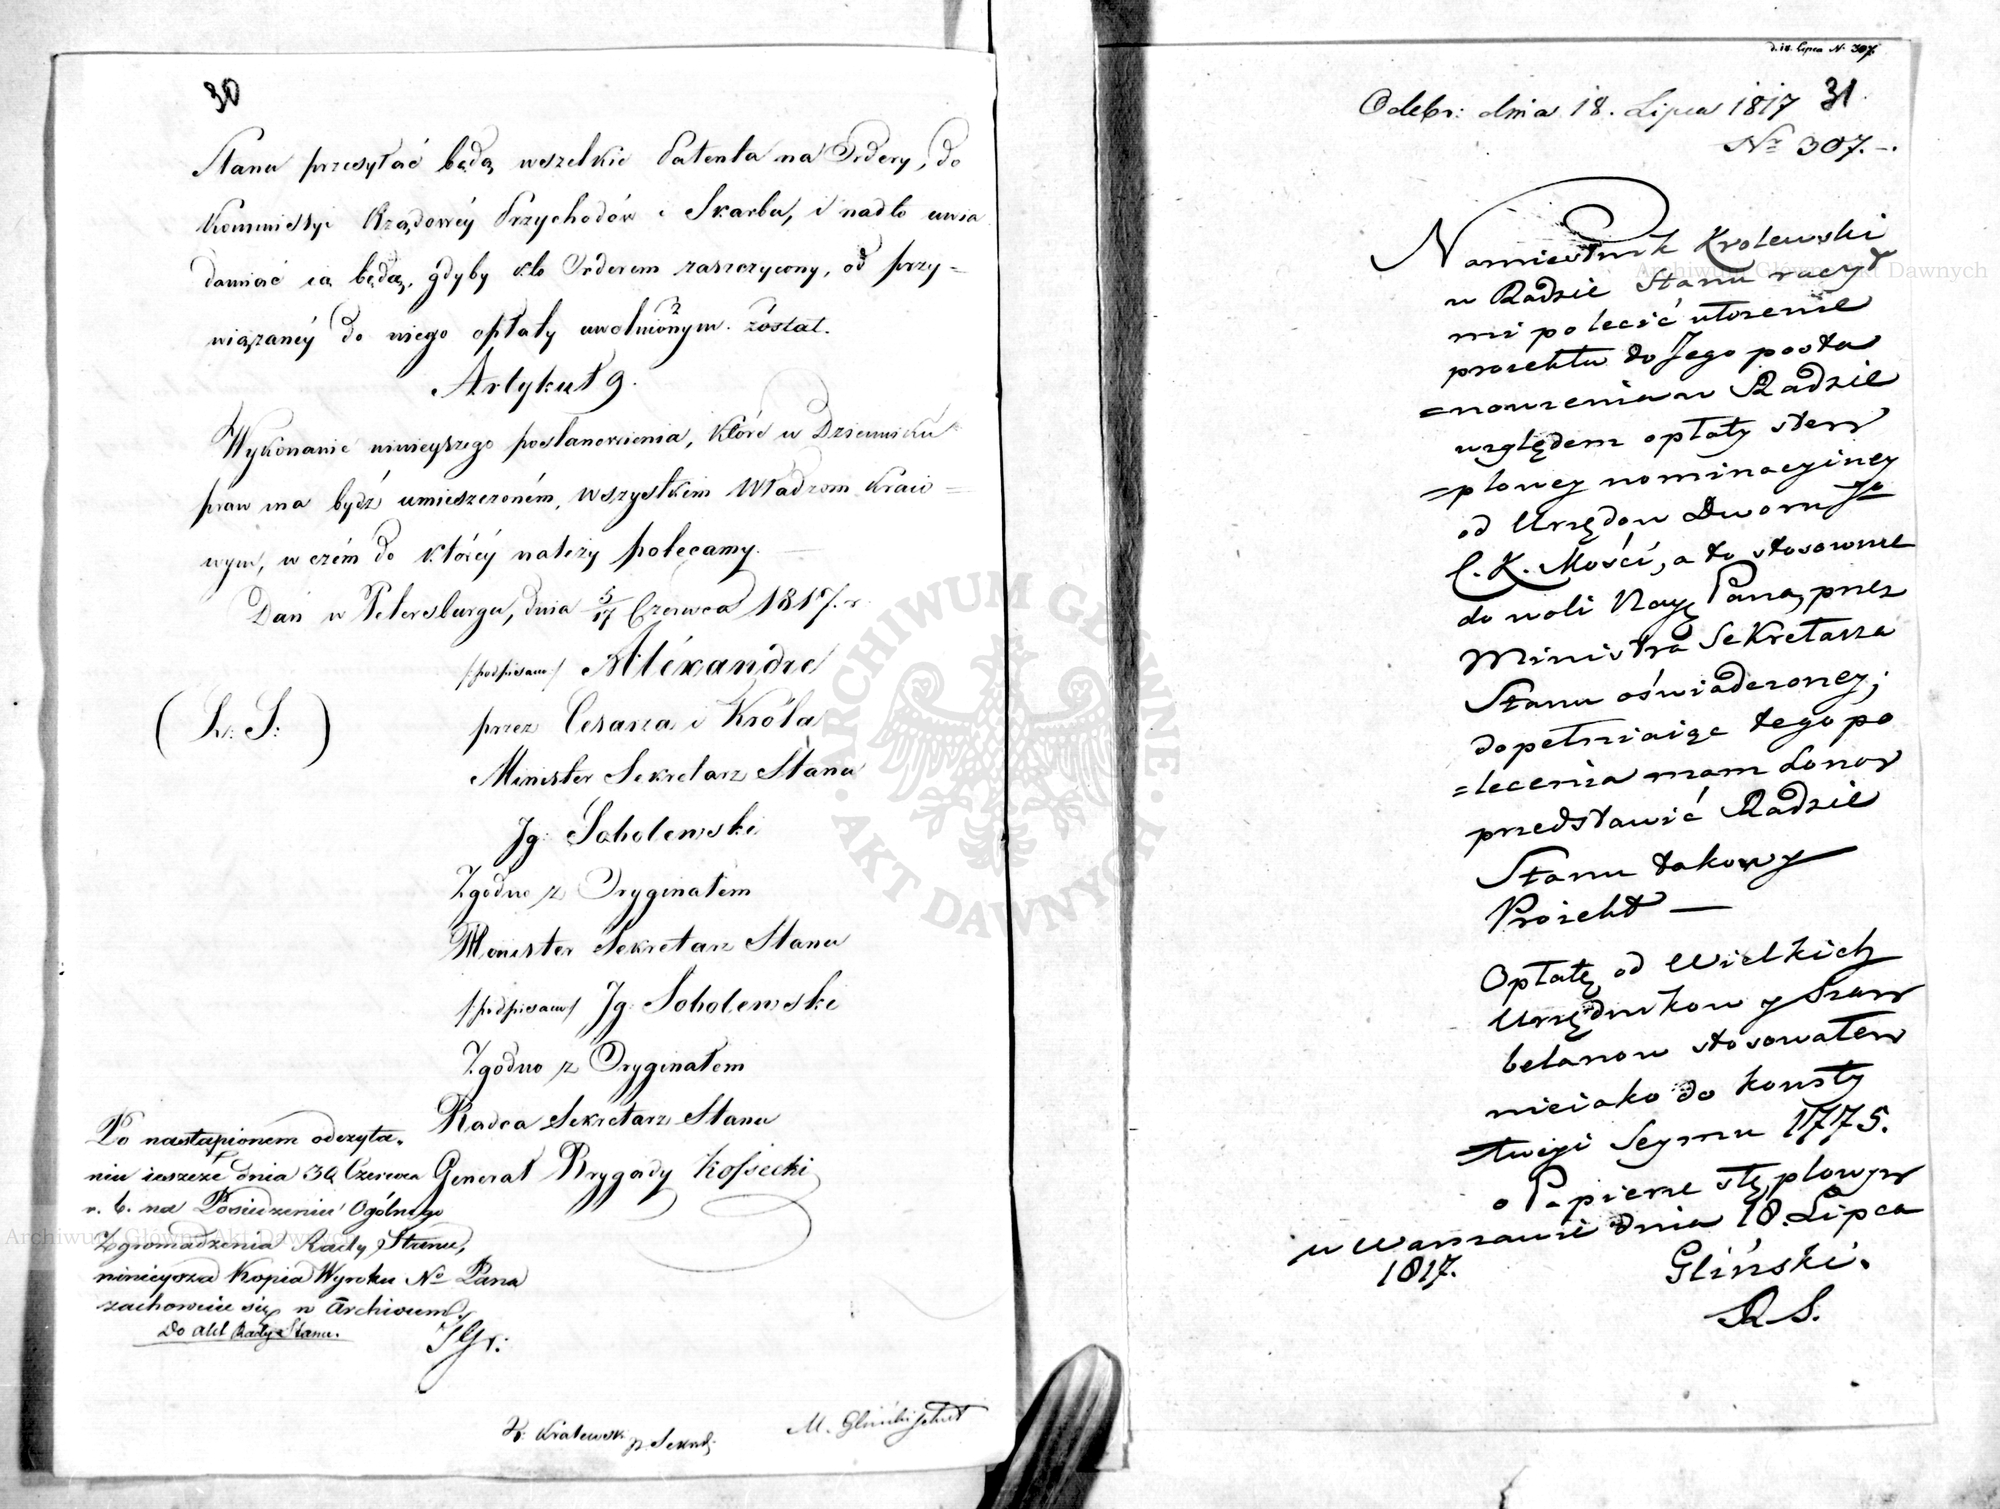 30
Stanu przesyłać będą wszelkie Patenta na Ordery, do
Kommissyi Rządowéy Przychodów i Skarbu, i nadto uwia
damiać ią będą, gdyby kto Orderem zaszczycony, od przy=
wiązanéy do niego opłaty uwolnionym został.
Artykuł 9.
Wykonanie ninieyszego postanowienia, które w Dzienniku
praw ma bydź umieszczoném, wszystkim Władzom Kraio=
wym, w czém do któréy należy polecamy.
Dan w Petersburgu, dnia 5/17 Czerwca 1817. r.
/:podpisano:/ Aléxandre
przez Cesarza i Króla
(L: S:)
Minister Sekretarz Stanu
Jg: Sobolewski
Zgodno z Oryginałem
Minister Sekretarz Stanu
/:podpisano:/ Jg: Sobolewski
Zgodno z Oryginałem
Radca Sekretarz Stanu
Generał Brygady Kossecki
Po nastąpionem odczyta=
niu ieszcze dnia 30 Czerwca
r. b. na Posiedzeniu Ogólnego
Zgromadzenia Rady Stanu,
ninieysza Kopia Wyroku No Pana
zachowuie się w Archiwum
Do Akt Rady Stanu.
M. Gliński
d. 18. Lipca N. 307.
Odebr: dnia 18. Lipca 1817 31
No 307.
Namiestnik Krolewski
w Radzie Stanu raczył
mi polecić ułożenie
proiektu do Jego posta
=nowienia w Radzie
względem opłaty stem
=plowey nominacyiney
od Urzędow Dworu Jo
C. K. Mości, a to stosownie
do woli Nayę Pana, przez
Ministra Sekretarza
Stanu oświadczoney;
dopełniaiąc tego po
=lecenia mam honor
przedstawić Radzie
Stanu takowy
Proiekt —
Opłatę od Wielkich
Urzędnikow y Szam
belanow stosowałem
nieiako do konsty
=tucyi Seymu 1775.
o Papierze stęplowym
w Warszawie dnia 18. Lipca
1817.
Gliński.
R S.
Archiwum Główne Akt Dawnych
Archiwum Główne Akt Dawnych
ARCHIWUM GŁÓWNE · AKT DAWNYCH ·